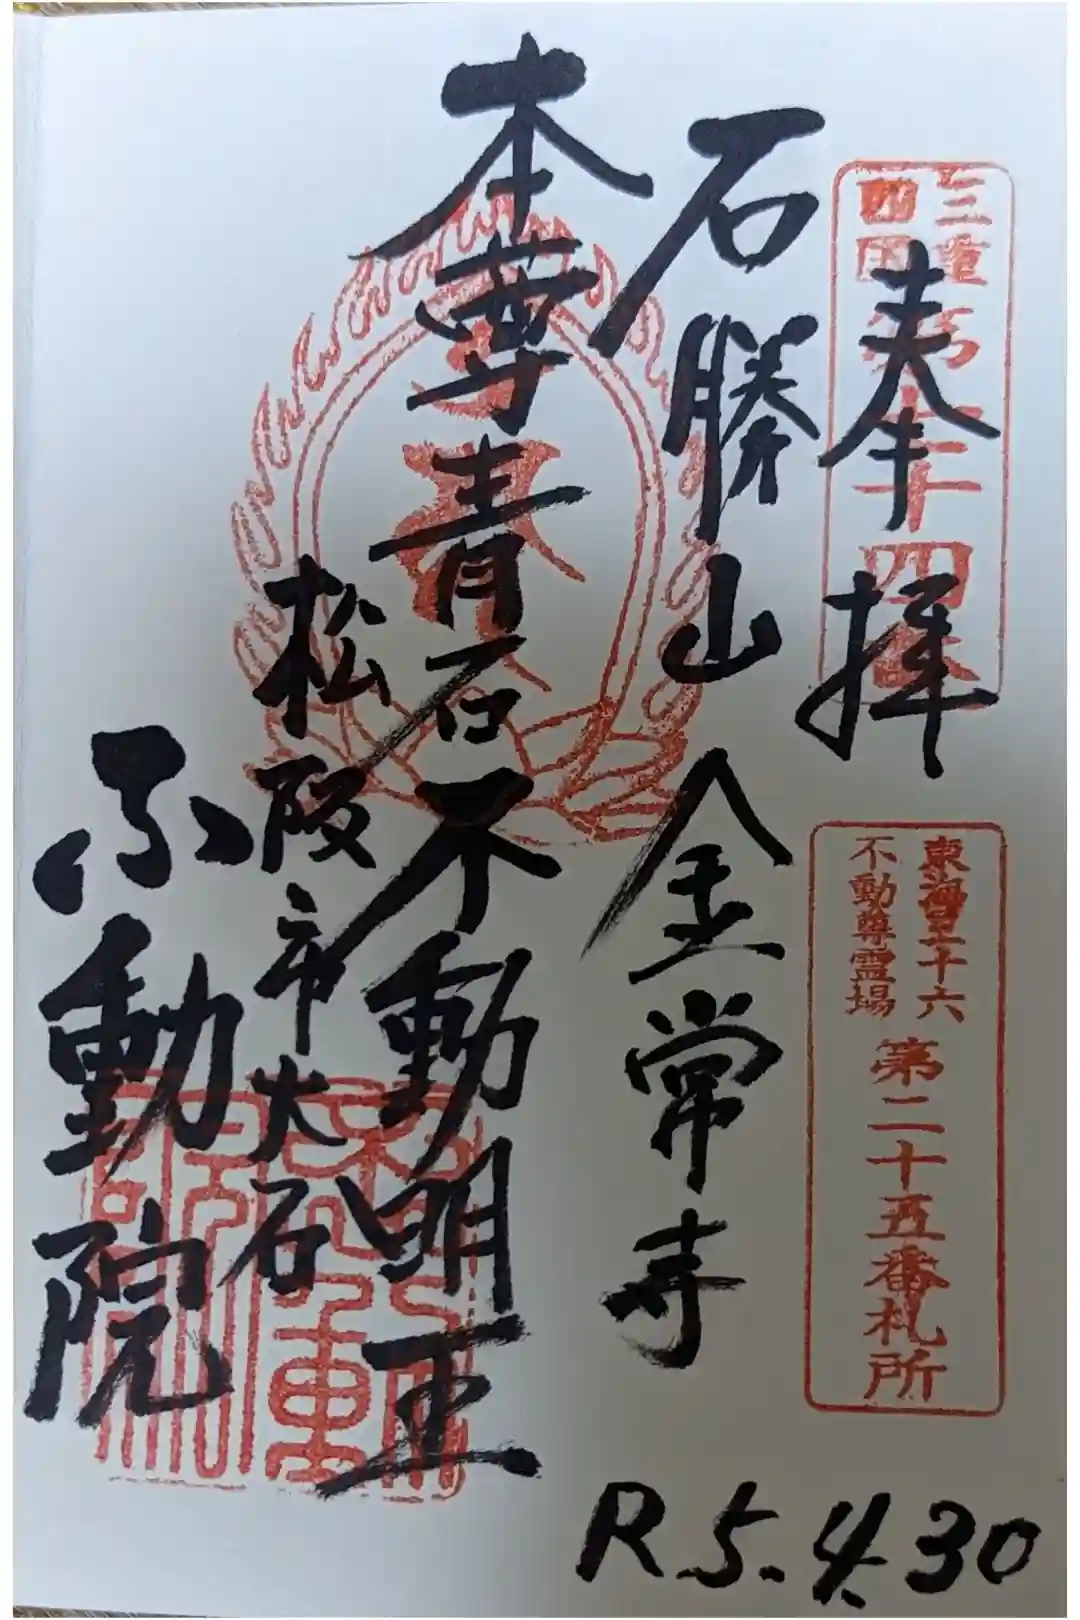 奉拝
三重
四国
第七十四番
東海三十六
不動尊霊場
第二十五番札所
石勝山金常寺
本尊青石不動明王
松阪市大石
不動院
R.5.4.30